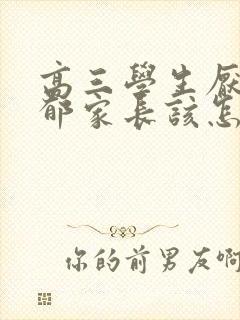 高三學生厭
都家長該怎
你的前男友啊